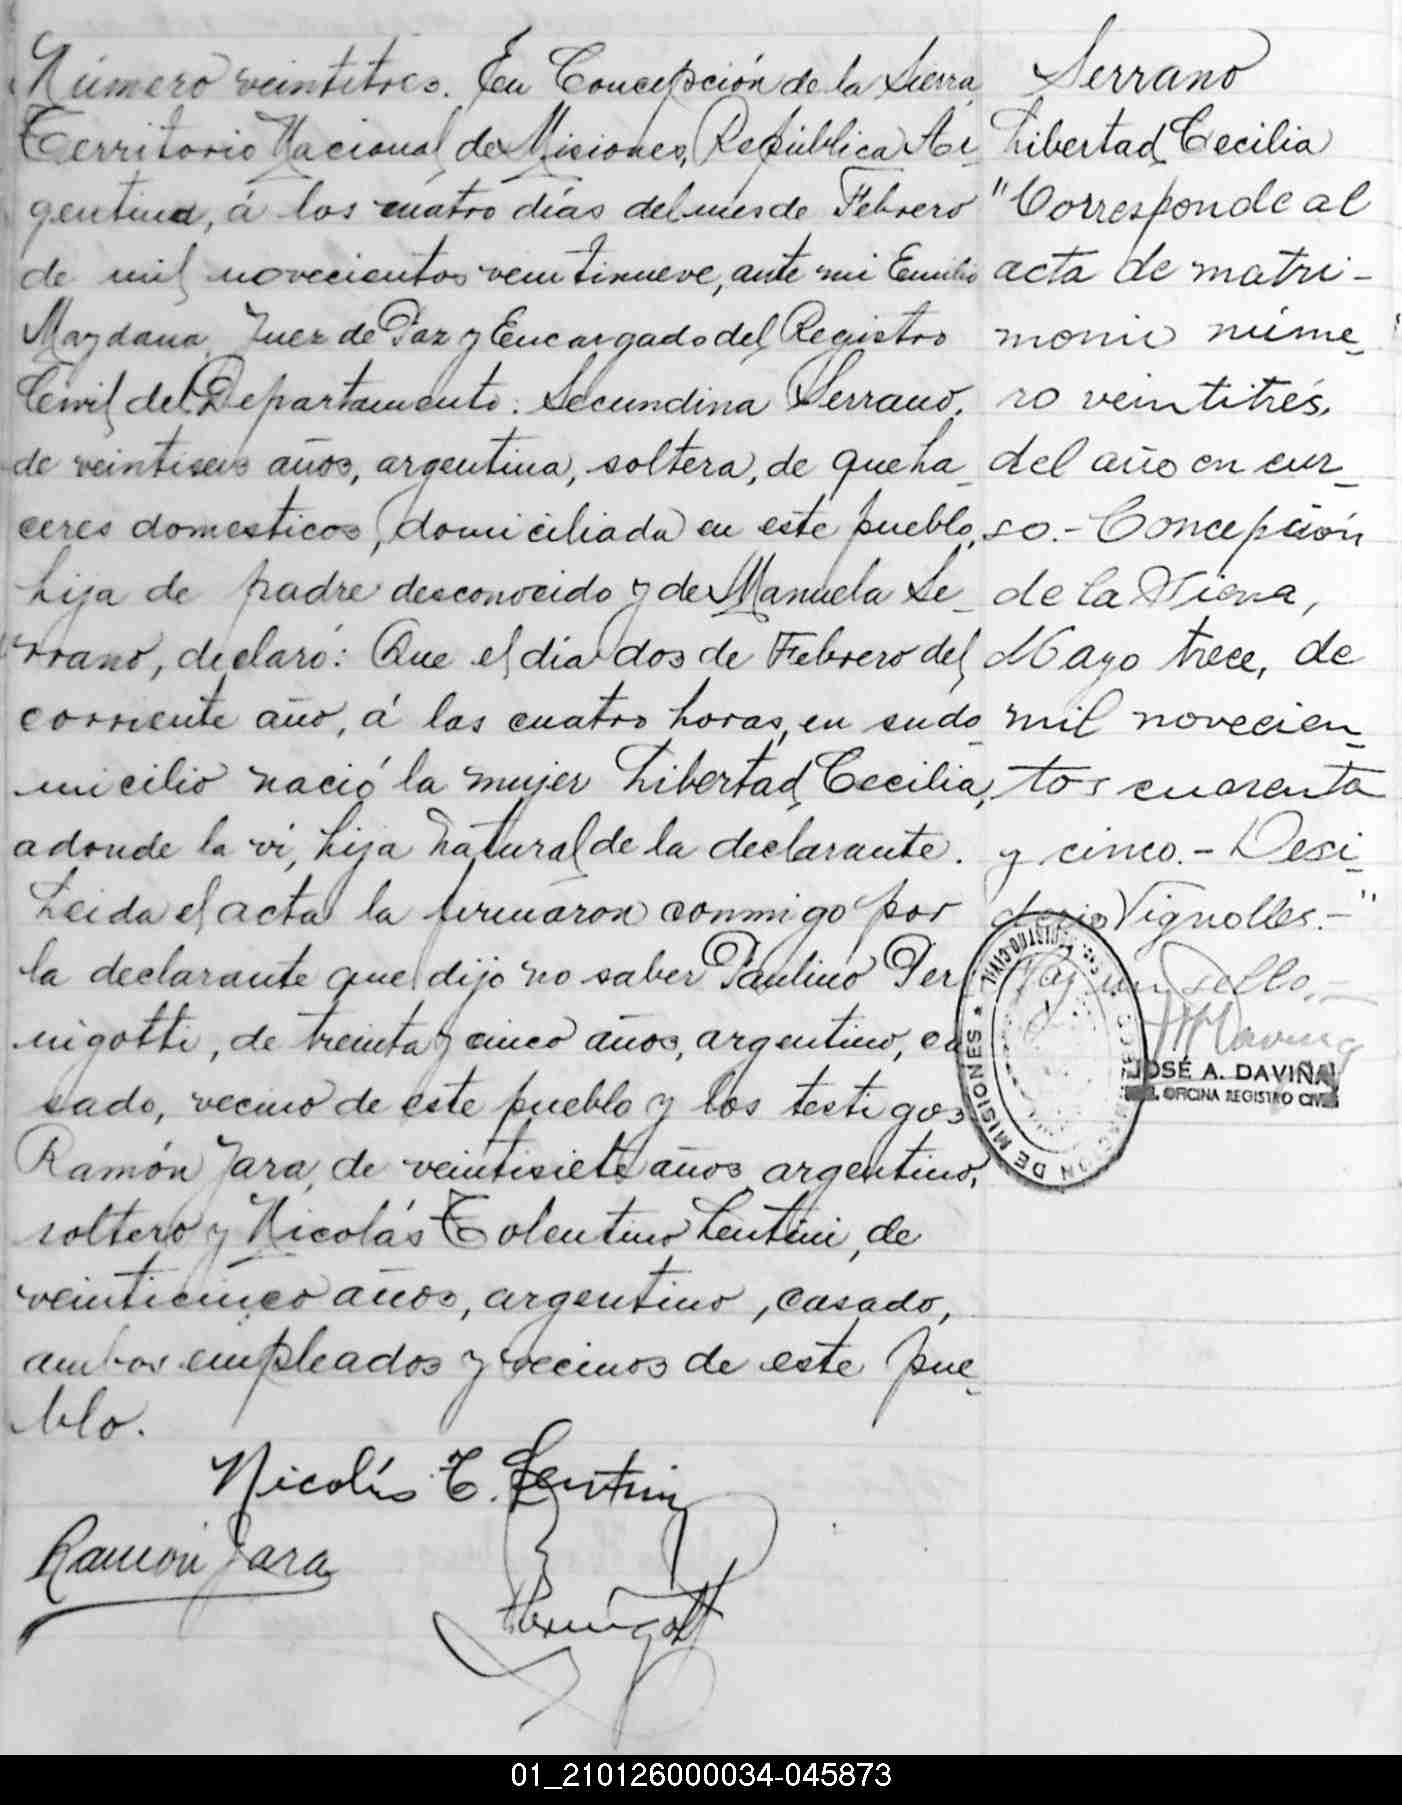 Número veintitres. En Concepción de la Sierra,
Territorio Nacional de Misiones, República Ar-
gentina, á los cuatro días del mes de Febrero
de mil novecientos veintinueve, ante mi Emilio
Maydana, Juez de Paz y Encargado del Registro
Civil del Departamento: Secundina Serrano,
de veintiseis años, argentina, soltera, de queha-
ceres domesticos, domiciliada en este pueblo,
hija de padre desconocido y de Manuela Se-
rrano, declaró: Que el día dos de Febrero del
corriente año, á las cuatro horas, en su do-
micilio nació la mujer Libertad Cecilia,
adonde la vi, hija natural de la declarante.
Leida el acta la firmaron conmigo por
la declarante que dijo no saber Paulino Per
nigotti, de treinta y cinco años, argentino, ca
sado, vecino de este pueblo y los testigos
Ramón Jara, de veintisiete años, argentino,
soltero y Nicolás Tolentino Lentini, de
veinticinco años, argentino, casado,
ambos empleados y vecinos de este pue-
blo.
Nicolás T. Lentini
Ramón Jara
Pernigotti
Serrano
Libertad Cecilia
"Corresponde al
acta de matri-
monio núme-
ro veintitrés,
del año en cur-
so.- Concepción
de la Sierra,
Mayo trece, de
mil novecien-
tos cuarenta
y cinco.- Desi-
derio Vignolles.-"
Hay un sello.-
JOSÉ A. DAVIÑA
OFICINA REGISTRO CIVIL
REGISTRO CIVIL
DE MISIONES
01_210126000034-045873